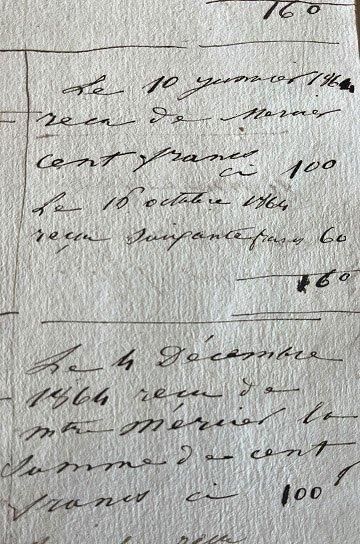 160
Le 10 janvier 1864
recu de Mercier
cent francs
ci 100
Le 16 octobre 1864
reçu soixante francs 60
160
Le 4 Décembre
1864 recu de
mtre Mércier la
Somme de cent
francs ci 100